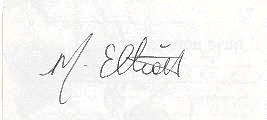 M. Elliott